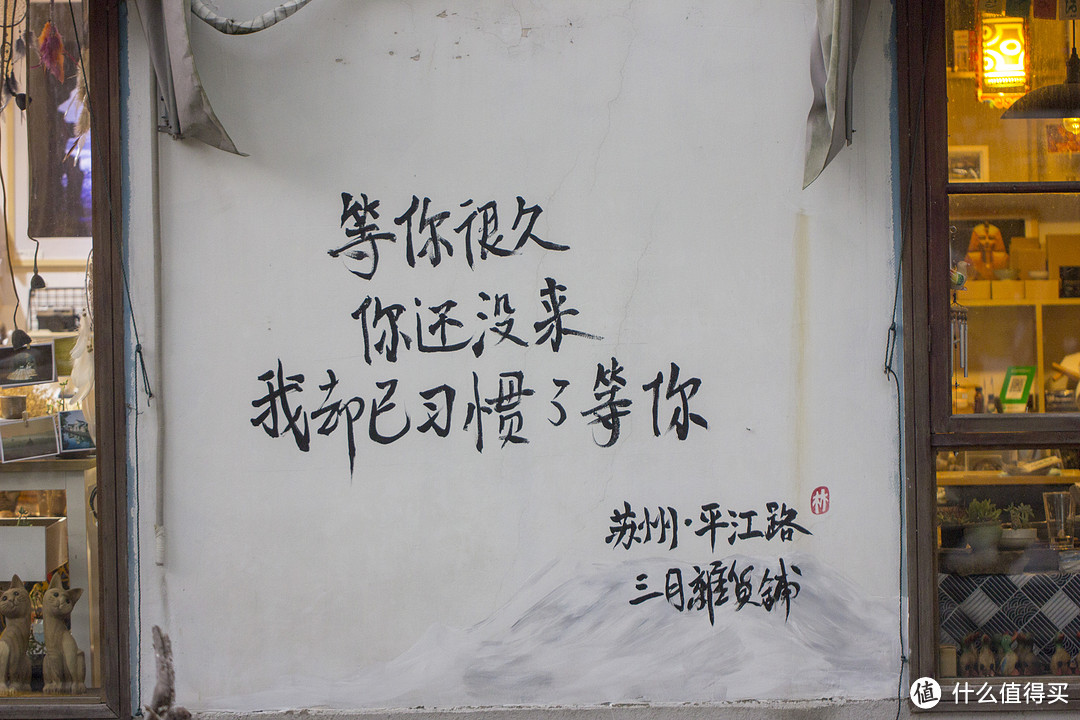 等你很久
你还没来
我却已习惯了等你
苏州·平江路
林
三月雜货铺
值 什么值得买